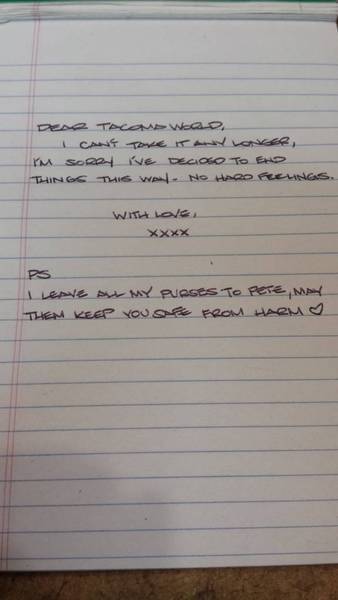 DEAR TACOMA WORLD,
I CAN'T TAKE IT ANY LONGER,
I'M SORRY I'VE DECIDED TO END
THINGS THIS WAY. NO HARD FEELINGS.
WITH LOVE,
XXXX
PS
I LEAVE ALL MY PURSES TO PETE, MAY
THEM KEEP YOU SAFE FROM HARM ♡